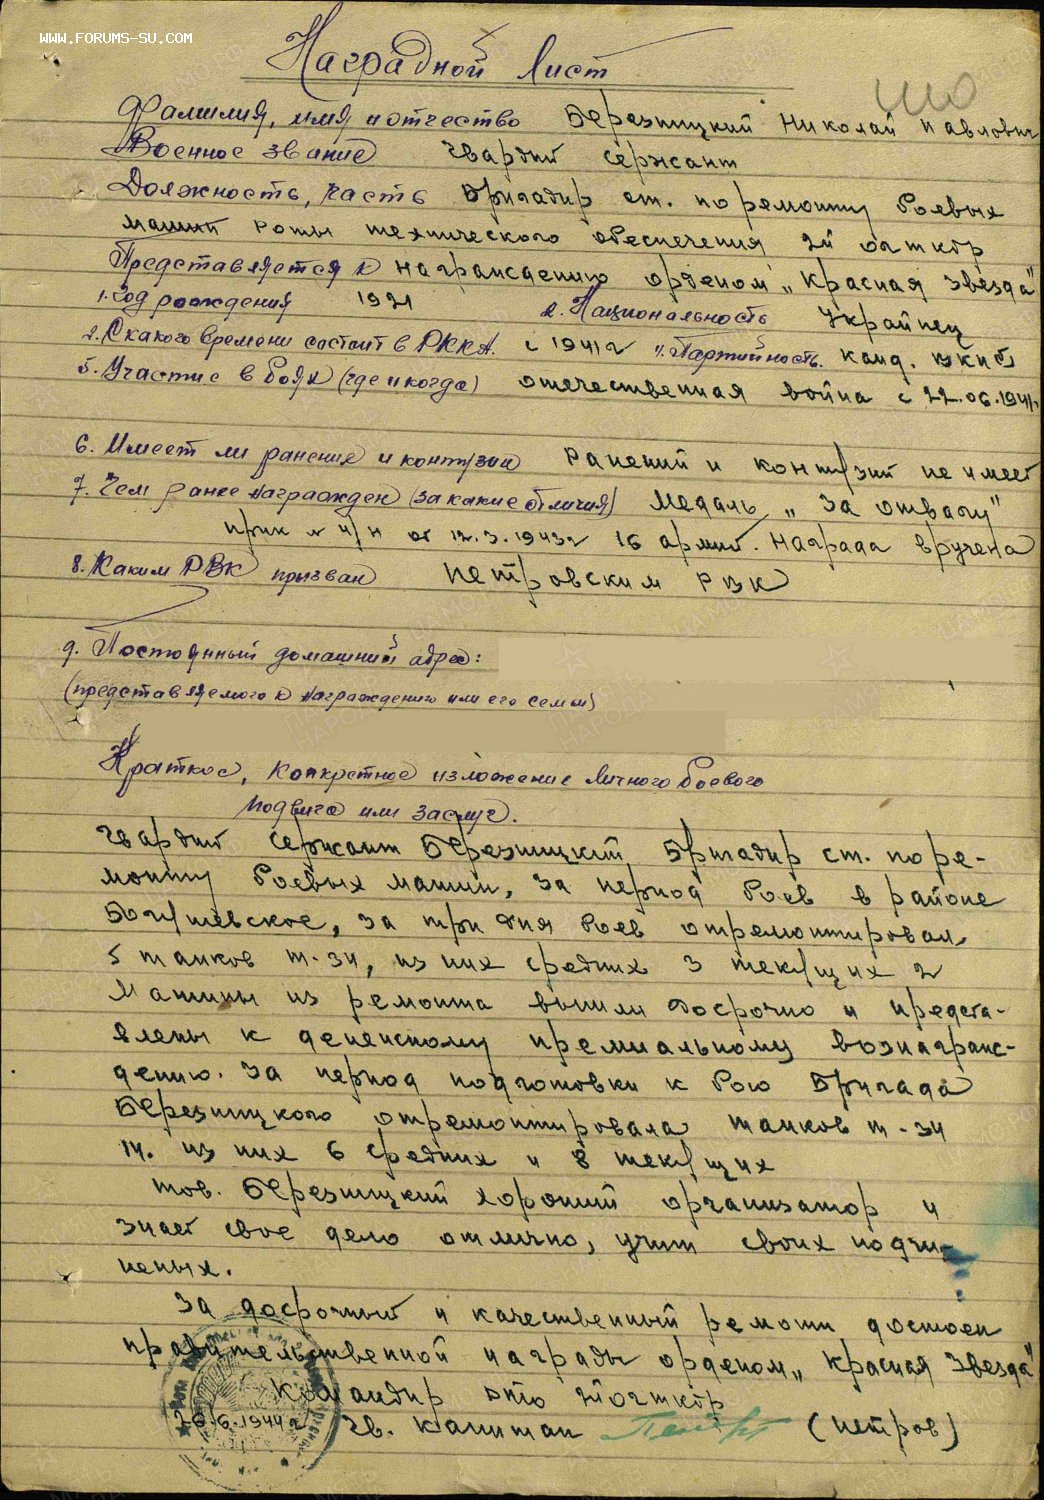 WWW.FORUMS-SU.COM
Наградной Лист
Фамилия, имя и отчество Березницкий Николай Павлович
Военное звание Гвардии сержант
Должность, часть Бригадир ст. по ремонту боевых
машин роты технического обеспечения 2й отткбр
Представляется к награждению орденом „Красная Звезда"
1. Год рождения 1921 2. Национальность Украинец
2. С какого времени состоит в РККА. с 1941 г 4. Партийность. канд. вкпб
5. Участие в боях (где и когда) отечественная война с 22.06.1941г
6. Имеет ли ранения и контузии ранений и контузий не имеет
7. Чем ранее награжден (за какие отличия) Медаль „За отвагу"
прик № ч/н от 12.3.1943г 16 армии. Награда вручена
8. Каким РВК призван Петровским РВК
9. Постоянный домашний адрес:
(представляемого к награждению или его семьи)
Краткое, конкретное изложение личного боевого
подвига или заслуг.
Гвардии сержант Березницкий, Бригадир ст. по ре-
монту боевых машин, за период боев в районе
Богушевское, за три дня боев отремонтировал
5 танков т-34, из них средних 3 текущих 2
Машины из ремонта вышли досрочно и предста-
влены к денежному премиальному вознаграж-
дению. За период подготовки к бою Бригада
Березницкого отремонтировала танков т-34
14. из них 6 средних и 8 текущих
тов. Березницкий хороший организатор и
знает свое дело отлично, учит своих подчи-
неных.
За досрочный и качественный ремонт достоен
правительственной награды орденом „Красная Звезда"
Командир рто 2йотткбр
26.6.1944 г Гв. капитан (Петров)